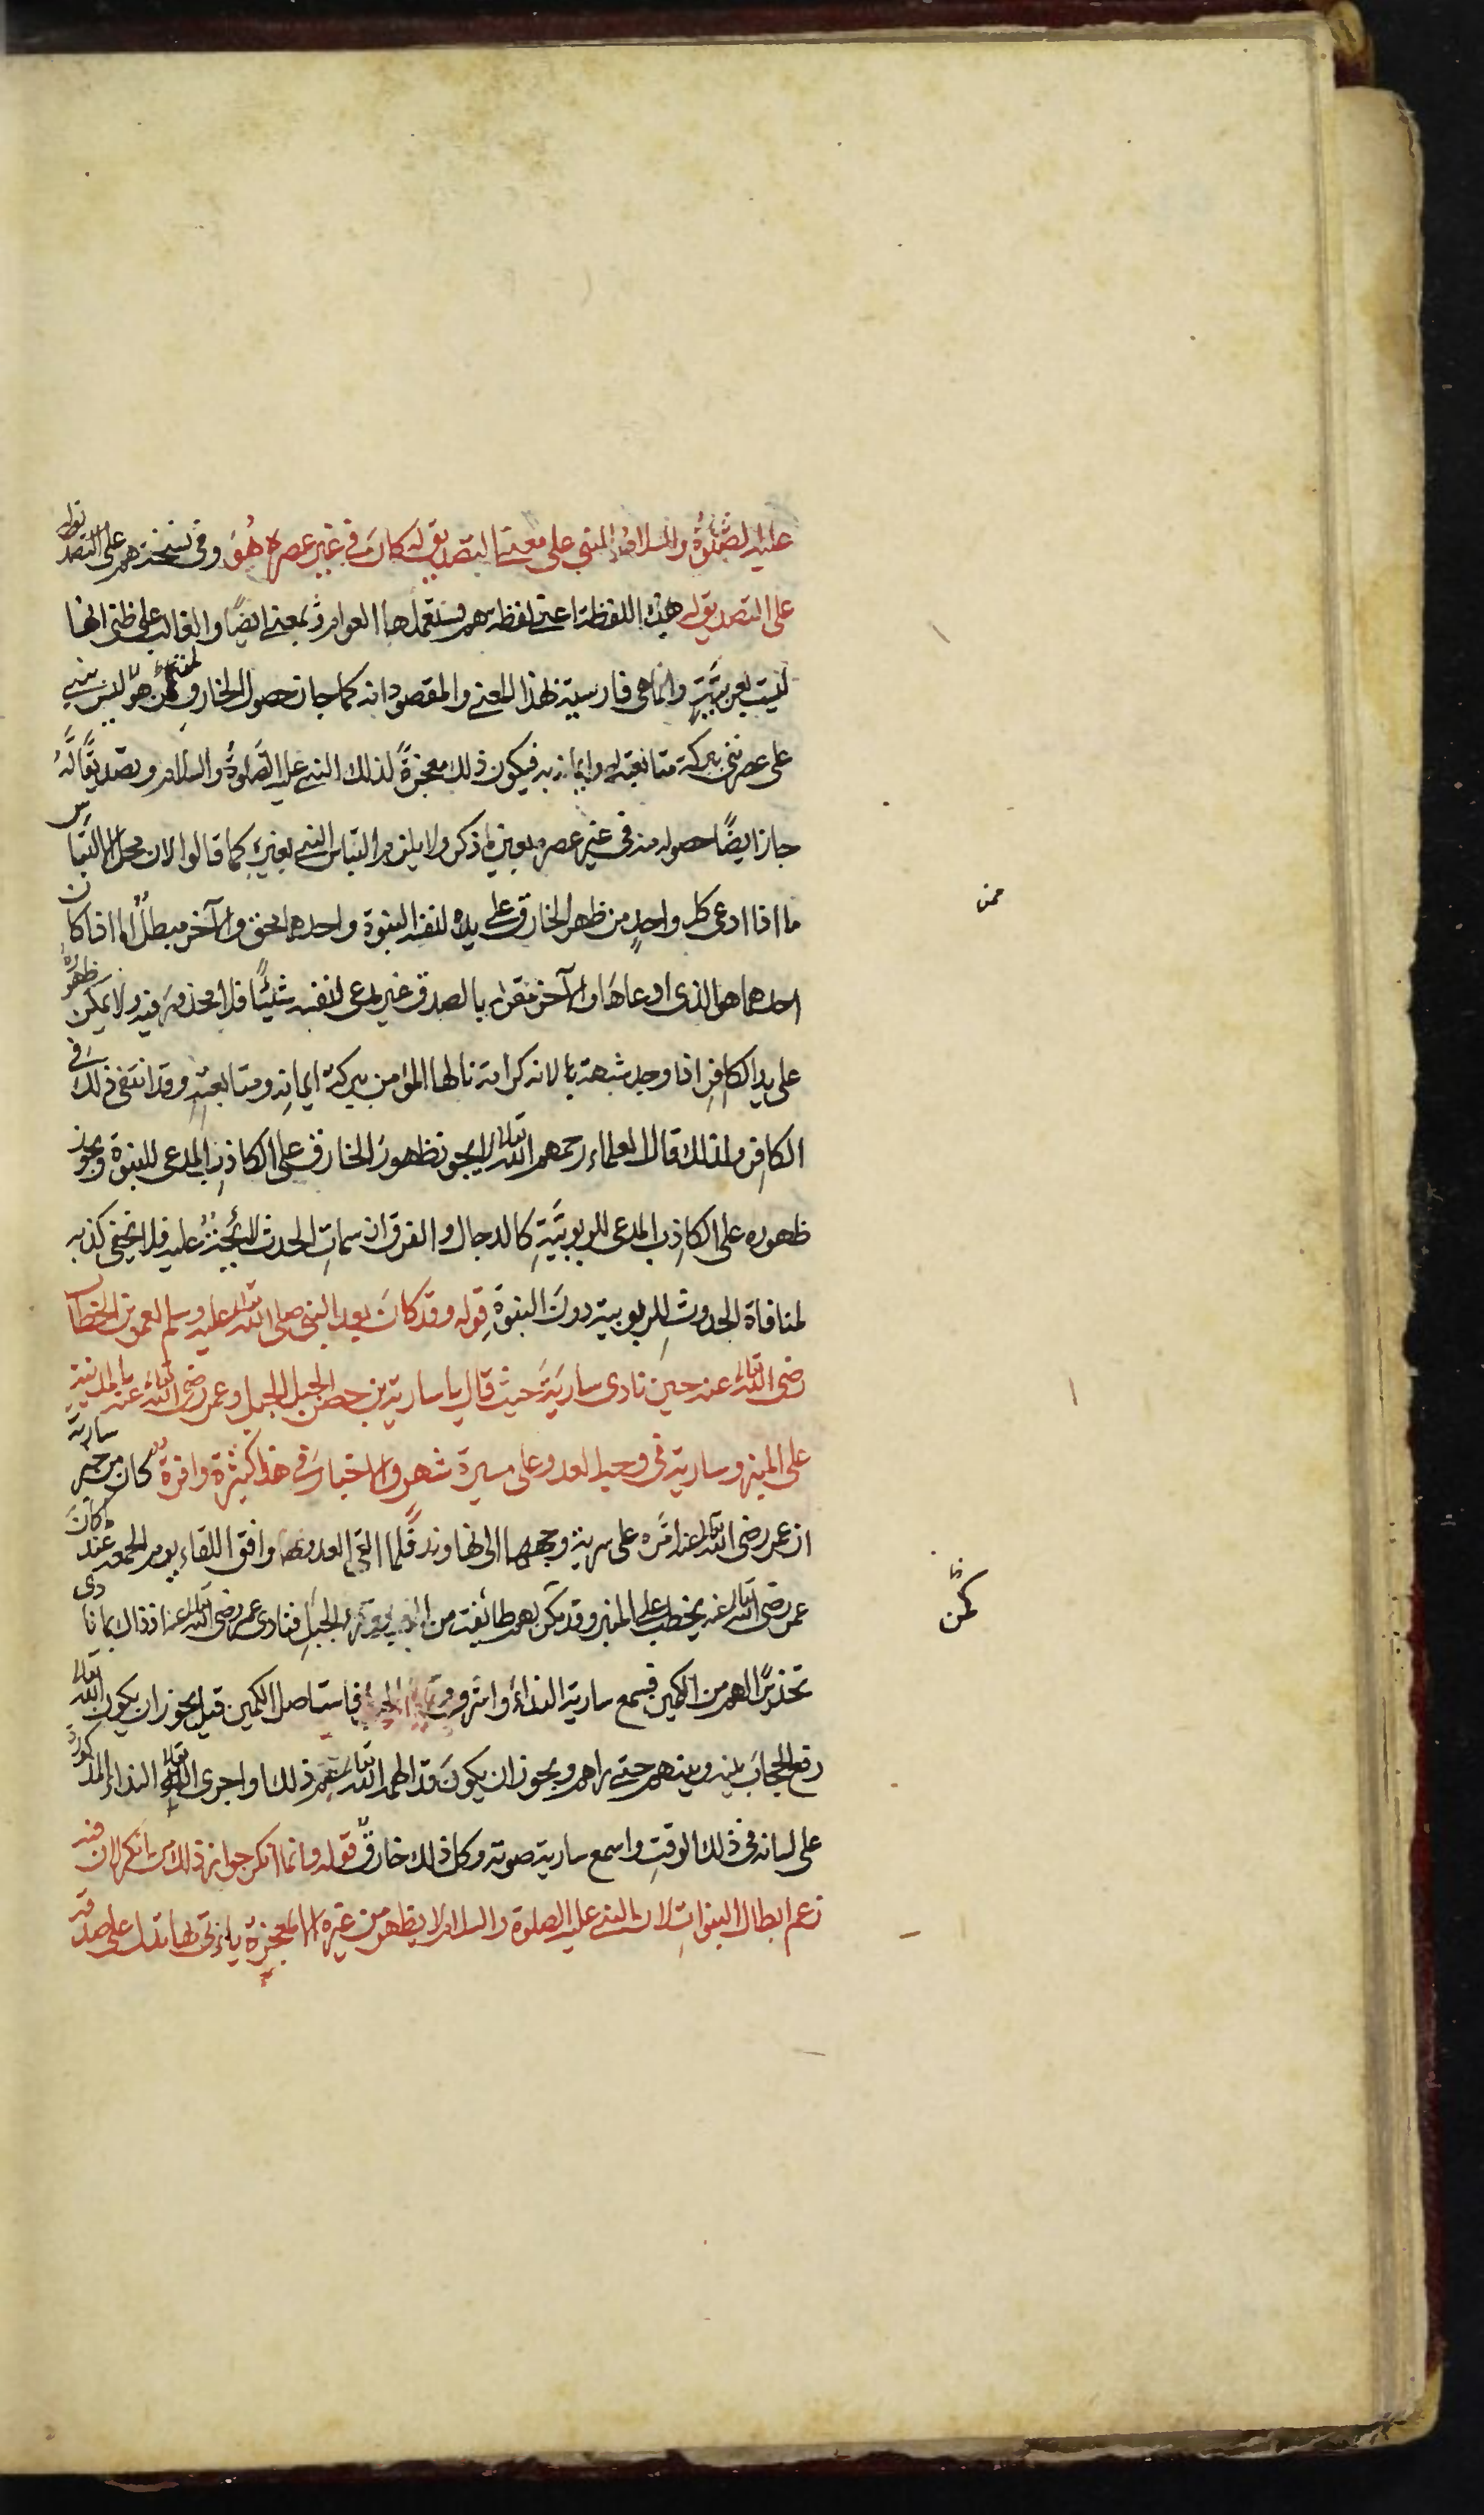 عليه الصلوة والسلام المبني على معنى التصديق له كان في غير عصره هو وفي نسخة هم على التصد يق له
على التصديق له هذه اللفظة اعني لفظه هم مستعملها العوام وثم بمعنى ايضًا والغالب على ظني انها
ليست بعربيّةٍ وانما هي فارسية لهذا المعنى والمقصود انه كما جاز حصول الخارق لمن هو ليس بنبي
على عصر نبي ببركة متابعته له وايمانه به فيكون ذلك معجزةً لذلك النبي عليه الصلوةُ والسلام وتصديقًا لَهُ
جاز ايضًا حصوله منه في غير عصره بعين ما ذكر ولا يلزم التباس النبي بغيره كما قالوا لان محل الالتباس
ما اذا ادعى كل واحدٍ من ظهر الخارق على يده لنفسه النبوة واحدهما محق والآخر مبطلٌ اما اذا كان
احدهما هو الذي ادعاها والآخر مقر له بالصدق غير مدعى لنفسه شيئًا فلا محذور فيه ولا يمكن ظهوره
على يد الكافر اذا وجد شبهة ما لانه كرامة نالها المؤمن ببركة ايمانه ومتابعته وقد انتفى ذلك في
الكافر ولذلك قال العلماء رحمهم الله تعالى لا يجوز ظهور الخارق على الكاذب المدعى للنبوة ويجوز
ظهوره على الكاذب المدعى للربوبيّةِ كالدجال والفرق ان سمات الحدث لائحة عليه فلا يخفى كذبه
لمنافاة الحدوث للربوبية دون النبوة قوله وقد كان بعد النبي صلى الله تعالى عليه وسلم لعمر بن الخطاب
رضى الله تعالى عنه حين نادى ساريَة حيث قال يا سارية بن حصن الجبل الجبل وعمر رضى الله تعالى عنه بالمدينة
على المنبر وسارية في وجه العدو على مسيرة شهر والاخبار في هذا كثيرة وافرة كان من خبر سارية
ان عمر رضى الله تعالى عنه امّره على سرية وجهها الى نهاوند فلما التقى العدو وافق اللقاء يوم الجمعة عند كان
عمر رضى الله تعالى عنه يخطب على المنبر وقد كمن لهم طائفة من الجبل فنادى عمر رضى الله تعالى عنه اذ ذاك بما نادى
تحذيرًا لهم من الكمين فسمع سارية النداء فاستاصل الكمين قيل يجوز ان يكون الله تعالى
رفع الحجاب بينه وبينهم حتى راهم ويجوز ان يكون قد الهمه الله تعالى ذلك واجرى الله تعالى النداء المذكور
على لسانه في ذلك الوقت واسمع سارية صوته وكل ذلك خارقٌ قوله وانما انكر جواز ذلك من انكر لان فيه
زعم ابطال النبوات لان النبي عليه الصلوة والسلام لا يظهر من غيره الا بمعجزة ياتي بها تدل على صدقه
ممن
كمن